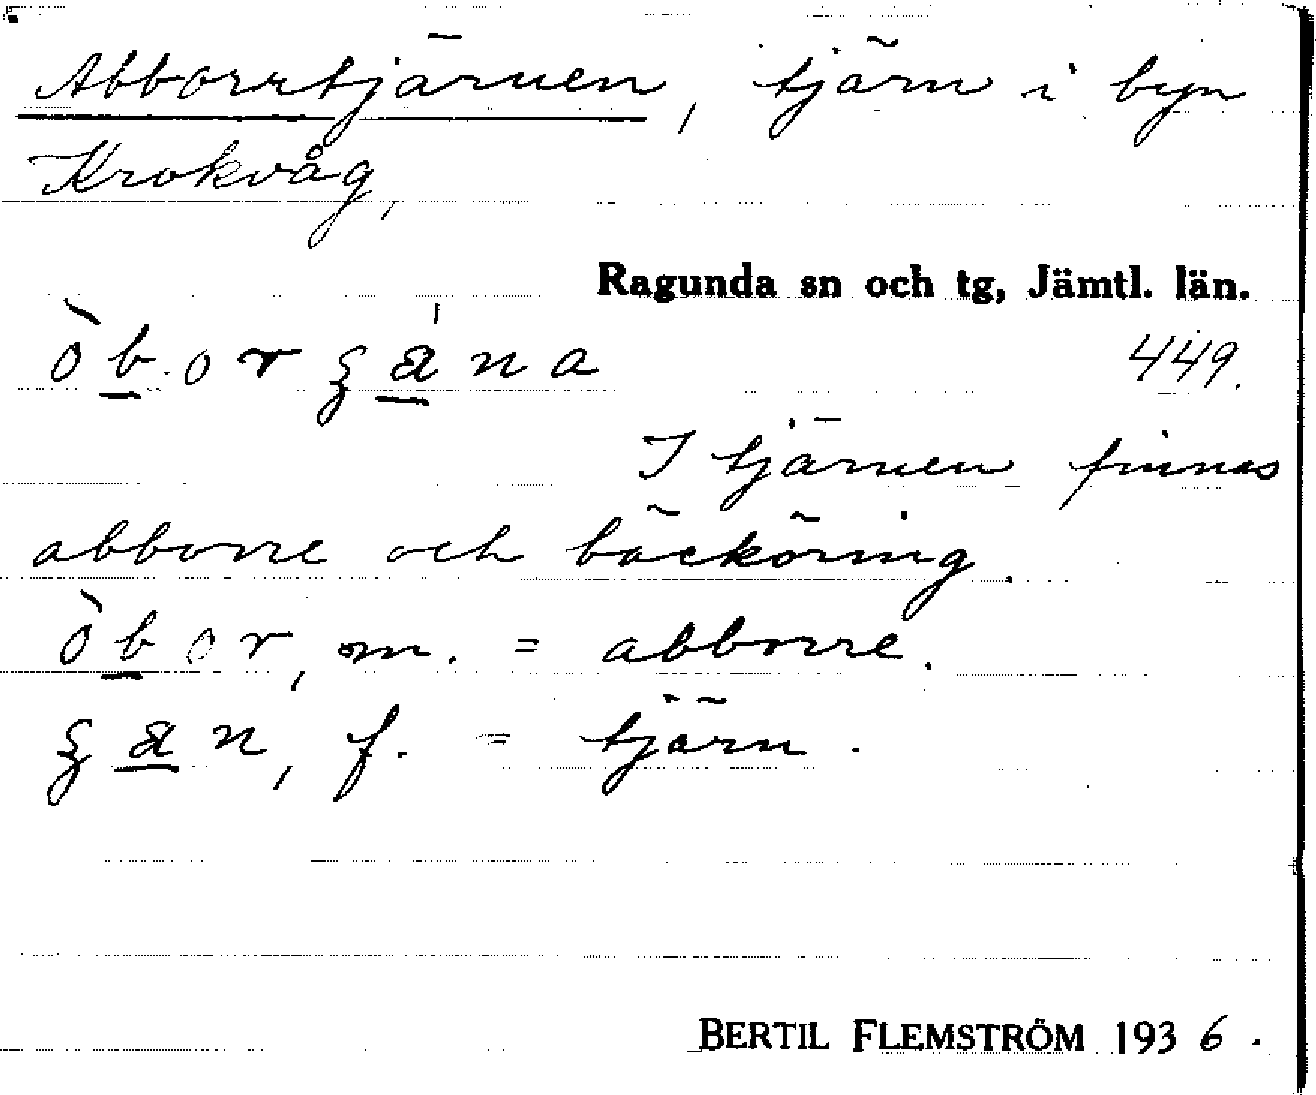 Abborrtjärnen, tjärn i byn
Krokvåg,
Ragunda sn och tg, Jämtl. län.
òb̲orʒa̲na 449.
I tjärnen finnes
abborre och bäcköring.
òb̲or, m. = abborre.
ʒa̲n, f. = tjärn.
BERTIL FLEMSTRÖM 1936.